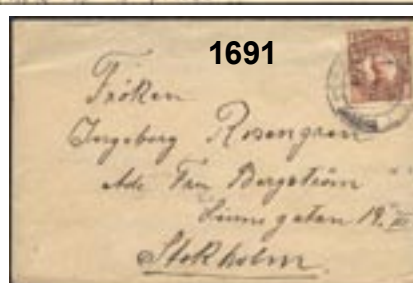 1691
Fröken
Ingeborg Rosengren
Adr. Fru Bergström
Linnégatan 19. III
Stokholm.